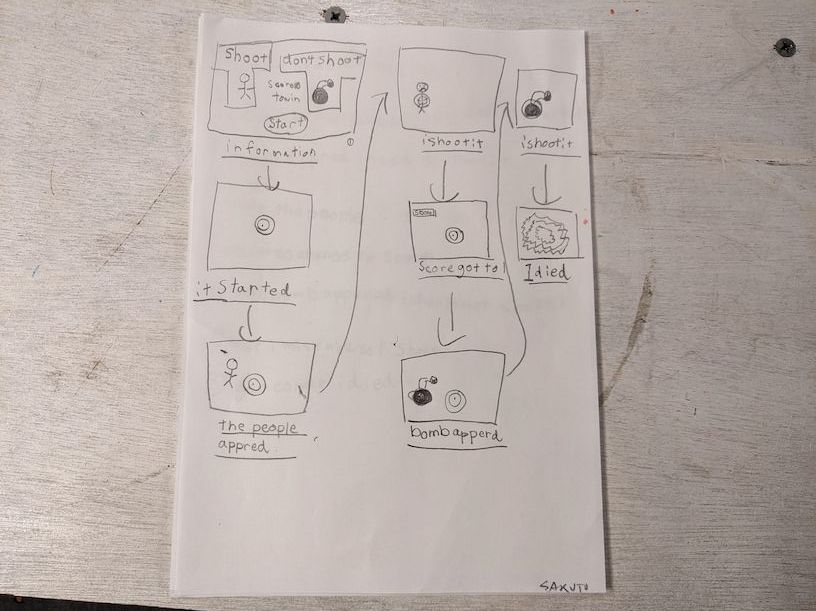 shoot
dont shoot
towin
Start
information
it started
the people
appred
ishootit
Score got to1
bomb apperd
ishootit
I died
SAKUTO